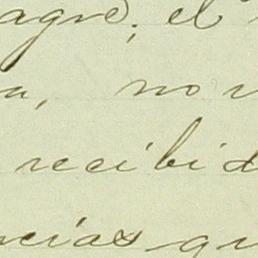 agre, el
a, no
recibid
ncias qu